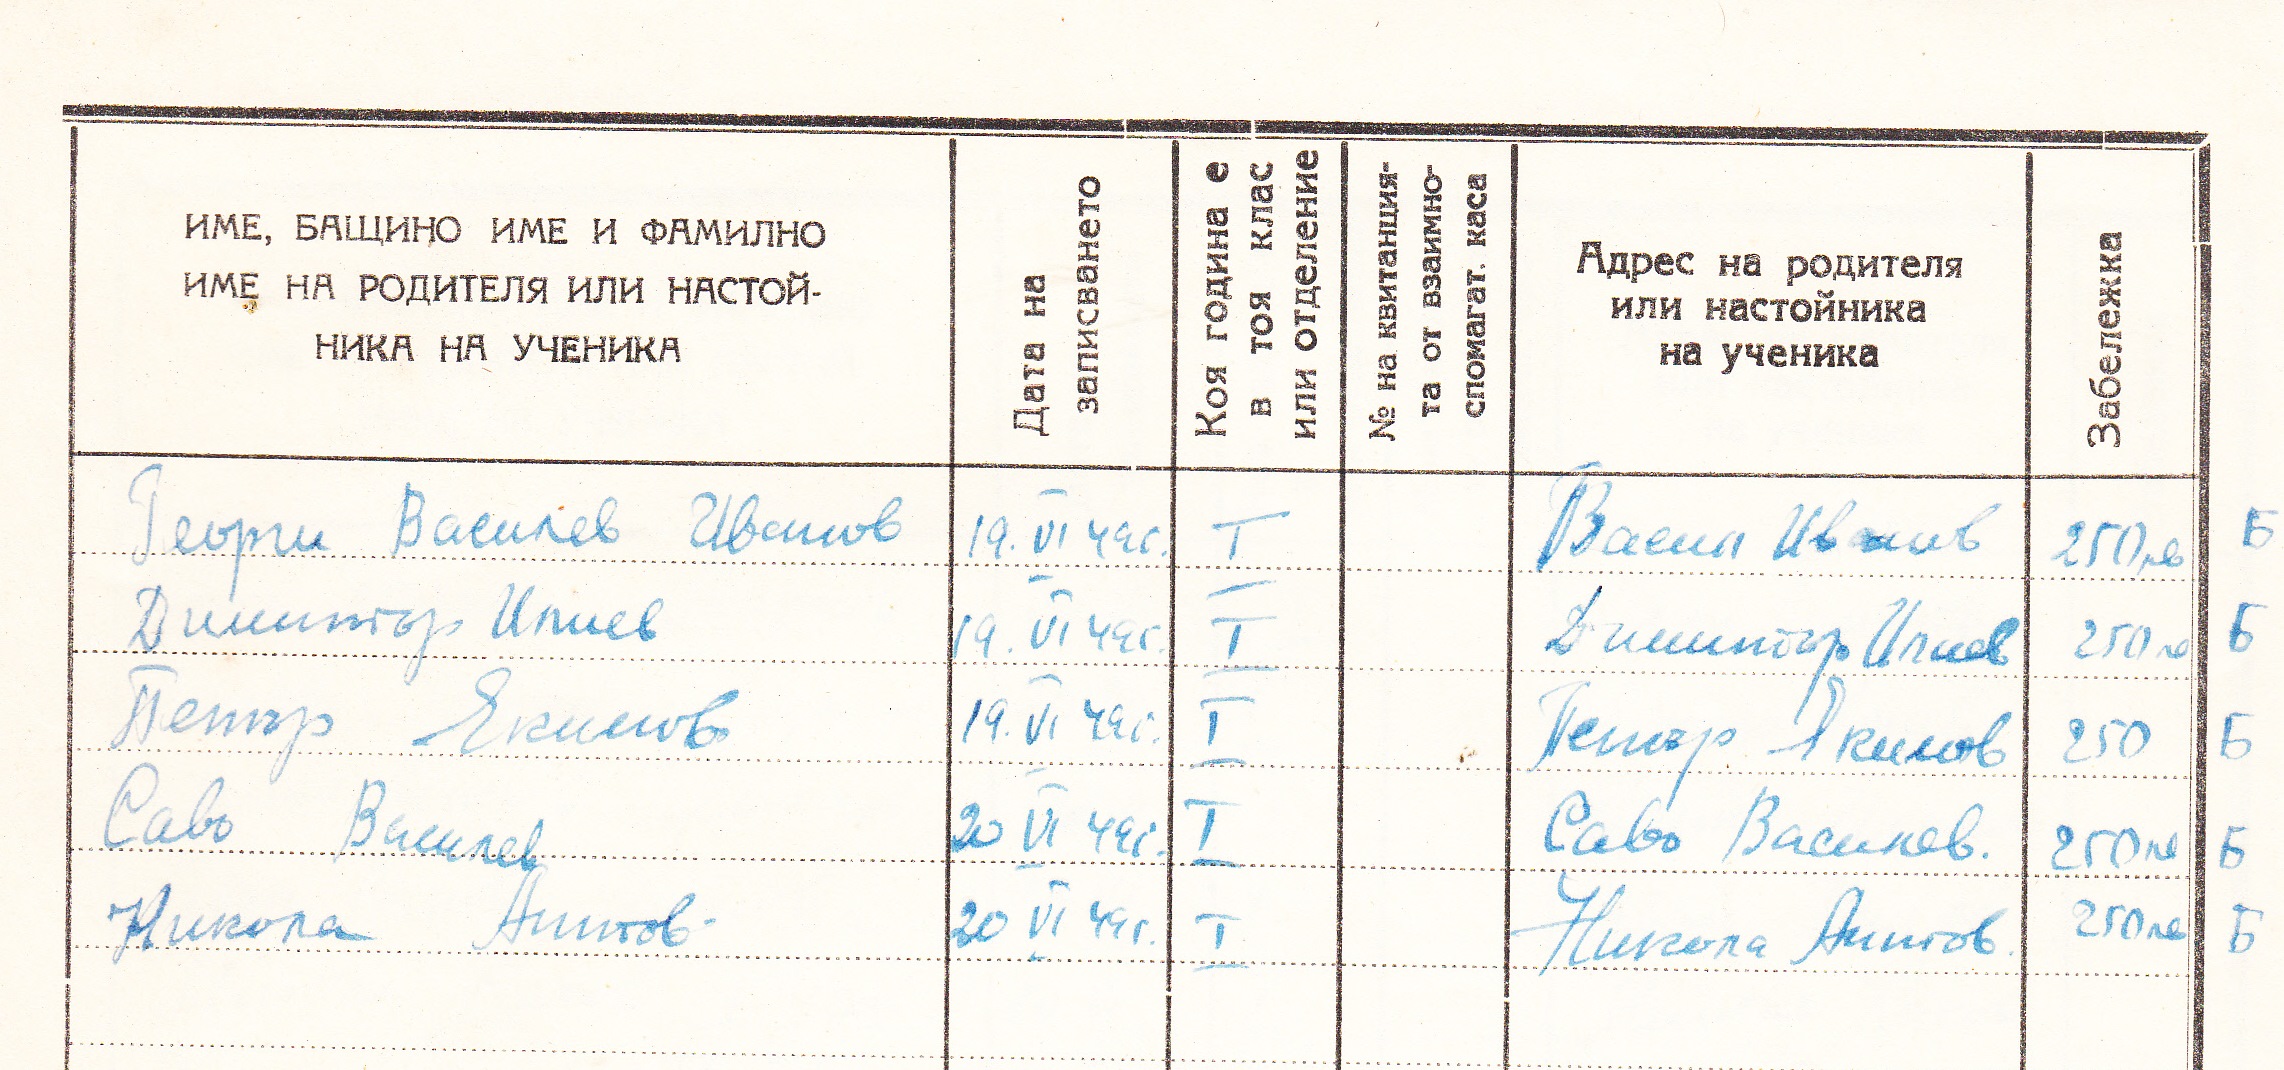 ИМЕ, БАЩИНО ИМЕ И ФАМИЛНО
ИМЕ НА РОДИТЕЛЯ ИЛИ НАСТОЙ-
НИКА НА УЧЕНИКА
Дата на
записването
Коя година е
в тоя клас
или отделение
№ на квитанция-
та от взаимно-
спомагат. каса
Адрес на родителя
или настойника
на ученика
Забележка
Георги Василев Иванов 19. VI 49г. I Васил Иванов 250 лв Б
Димитър Илиев 19. VI 49г. I Димитър Илиев 250 лв Б
Петър Якимов 19. VI 49г. I Петър Якимов 250 Б
Савъ Василев 20 VI 49г. I Савъ Василев. 250 лв Б
Никола Антов 20 VI 49г. I Никола Антов. 250 лв Б